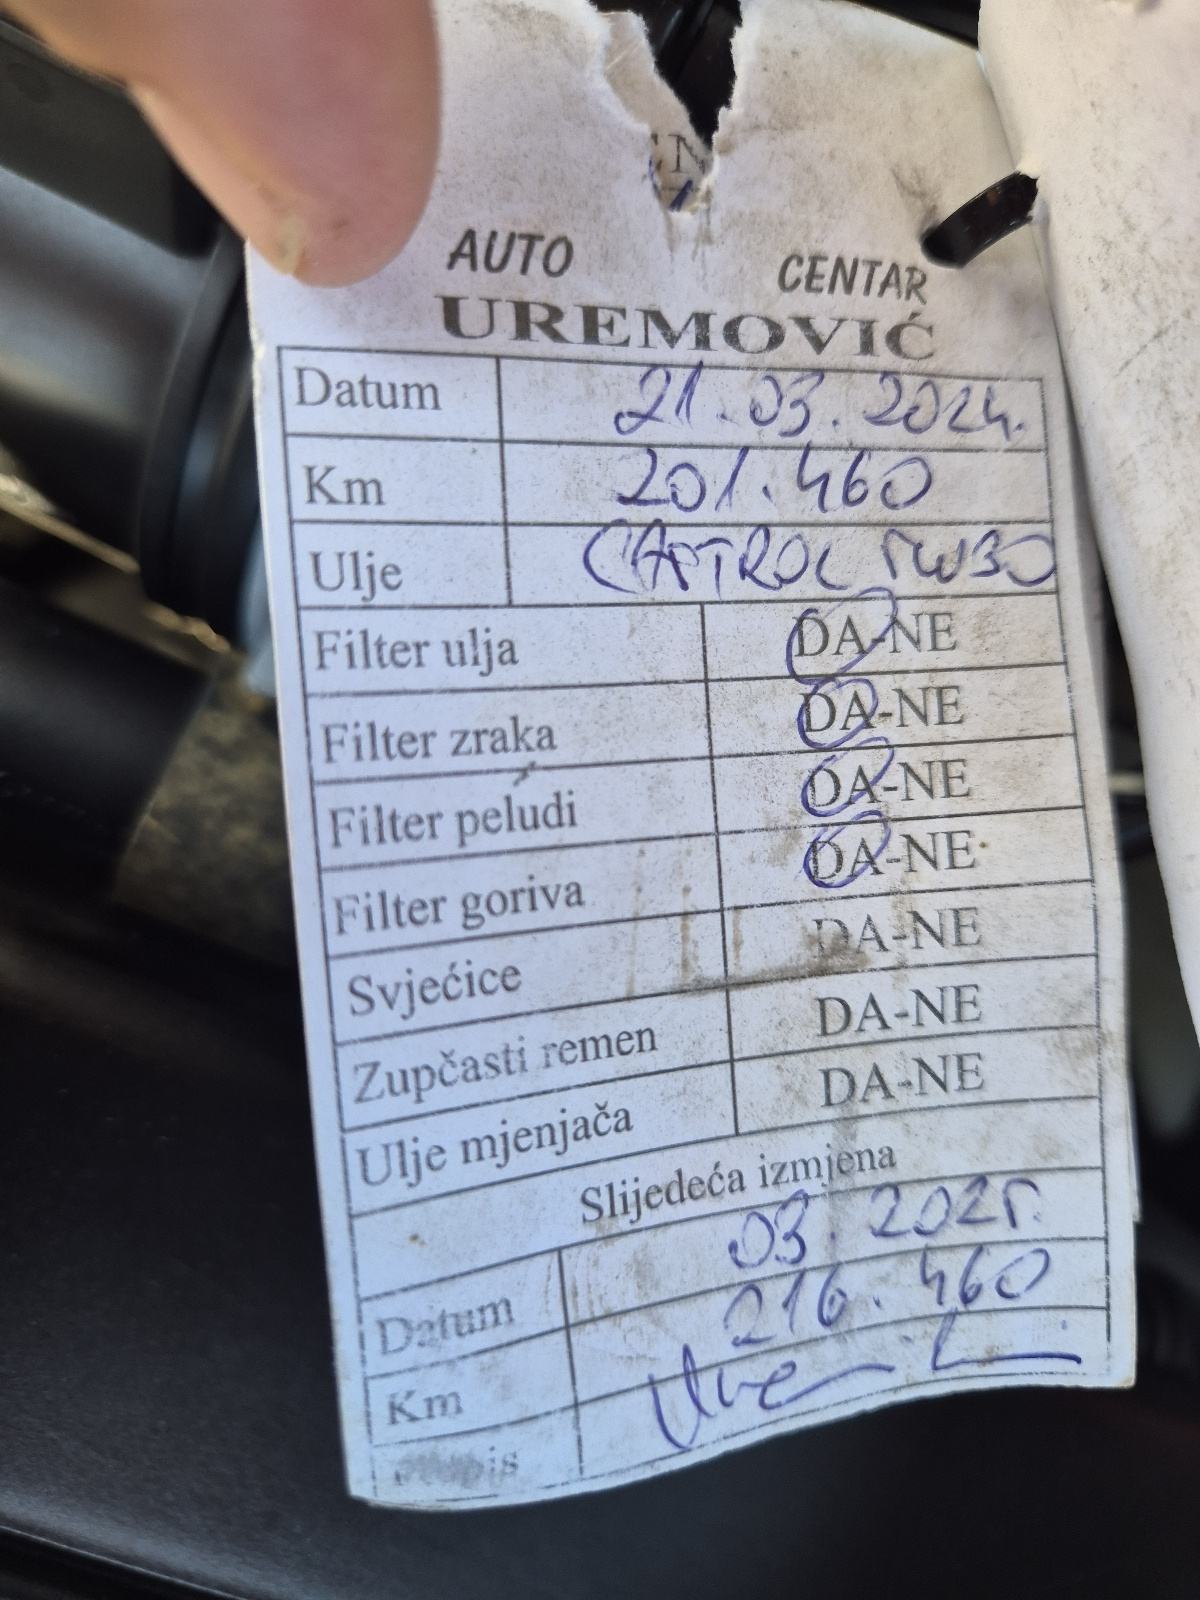 AUTO CENTAR
UREMOVIĆ
Datum 21.03.2024.
Km 201.460
Ulje CASTROL 5W30
Filter ulja DA-NE
Filter zraka DA-NE
Filter peludi DA-NE
Filter goriva DA-NE
Svjećice DA-NE
Zupčasti remen DA-NE
Ulje mjenjača DA-NE
Slijedeća izmjena
Datum 03.2025.
Km 216.460